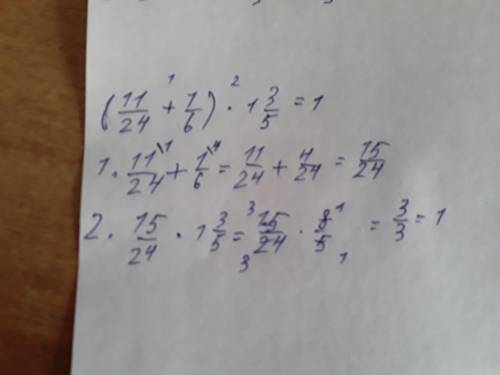 (11/24 +¹ 1/6) ·² 1 3/5 = 1
1. 11\1/24 + 1\4/6 = 11/24 + 4/24 = 15/24
2. 15/24 · 1 3/5 = ³15/24₃ · 8¹/5₁ = 3/3 = 1